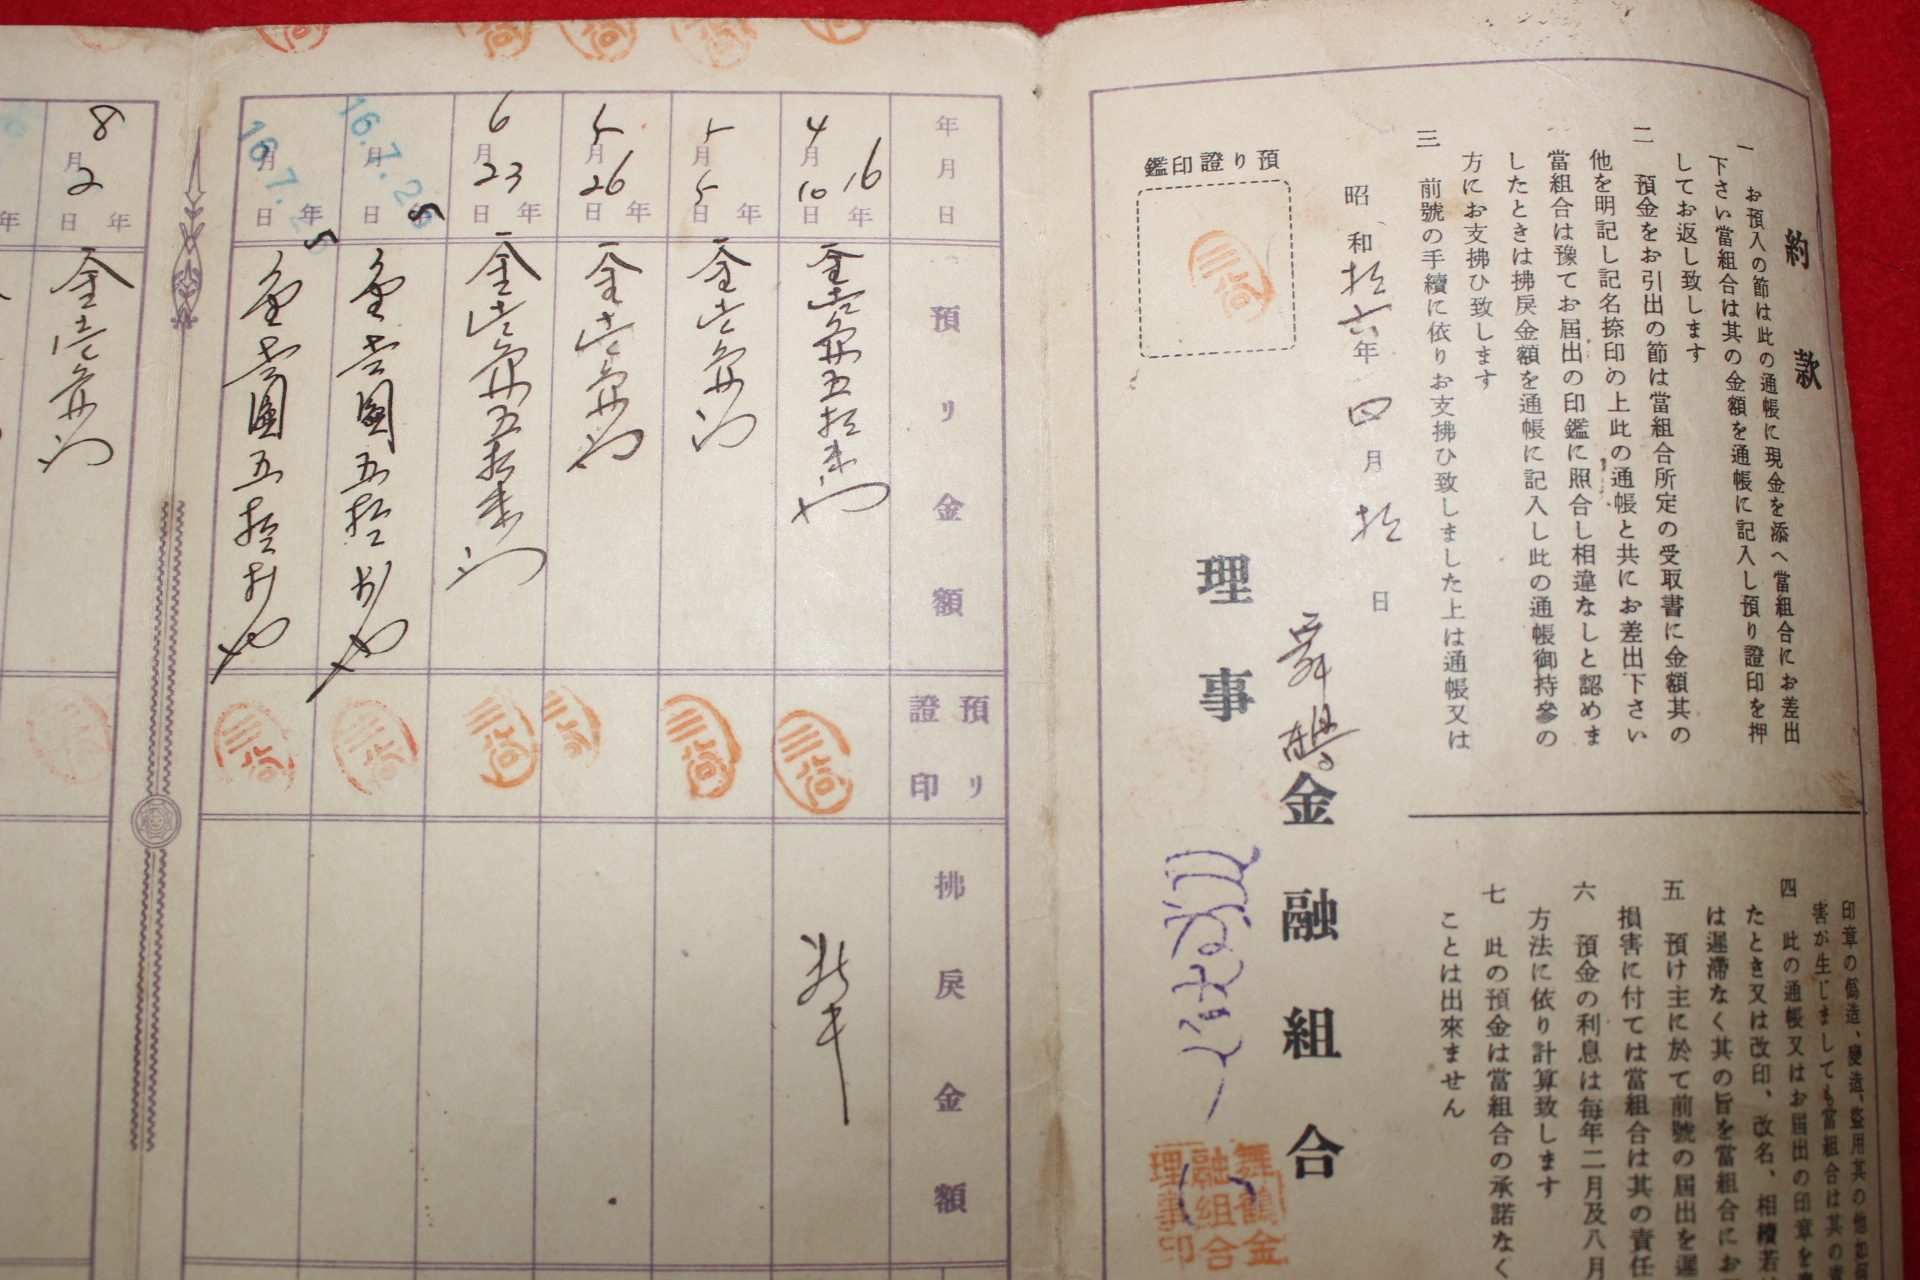 約款
一 お預入の節は此の通帳に現金を添へ當組合にお差出
下さい當組合は其の金額を通帳に記入し預り證印を押
してお返し致します
二 預金をお引出の節は當組合所定の受取書に金額其の
他を明記し記名捺印の上此の通帳と共にお差出下さい
當組合は豫てお屆出の印鑑に照合し相違なしと認めま
したときは拂戻金額を通帳に記入し此の通帳御持參の
方にお支拂ひ致します
三 前號の手續に依りお支拂ひ致しました上は通帳又は
印章の僞造、變造、盜用其の他如何
害が生じましても當組合は其の責
四 此の通帳又はお屆出の印章を
たとき又は改印、改名、相續若
は遲滯なく其の旨を當組合にお
五 預け主に於て前號の屆出を遲
損害に付ては當組合は其の責任
六 預金の利息は每年二月及八月
方法に依り計算致します
七 此の預金は當組合の承諾なく
ことは出來ません
昭和拾六年四月拾日
舞鶴金融組合
理事
舞鶴金
融組合
理事印
預り證印鑑
年月日
預リ金額
預リ證印
拂戻金額
16年4月10日
金壱円五拾銭也
5月5日 年
金壱円也
5月26日 年
金壱円也
6月23日 年
金壱円五拾銭也
16.7.25
月 日 年
金壱圓五拾銭也
16.7.25
月 日 年
金壱圓五拾銭也
8月2日 年
金壱円也